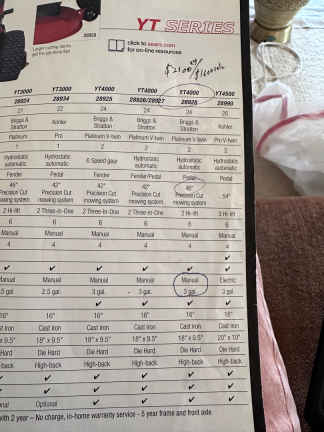 28928
Larger cutting decks
get the job done fast
YT SERIES
click to sears.com
for on-line resources
YT3000 YT3000 YT4000 YT4000 YT4000 YT4500
28924 28934 28925 28926/28927 28928 28990
21 22 24 24 24 26
Briggs & Stratton Kohler Briggs & Stratton Briggs & Stratton Briggs & Stratton Kohler
Platinum Pro Platinum V-twin Platinum V-twin Platinum V-twin Pro V-twin
1 1 2 2 2 2
Hydrostatic automatic Hydrostatic automatic 6 Speed gear Hydrostatic automatic Hydrostatic automatic Hydrostatic automatic
Fender Fender Fender Fender/Pedal Pedal Pedal
46" Precision Cut mowing system 42" Precision Cut mowing system 42" Precision Cut mowing system 42" Precision Cut mowing system 46" Precision Cut mowing system 54"
2 Hi-lift 2 Three-in-One 2 Three-in-One 2 Three-in-One 2 Hi-lift 3 Hi-lift
6 6 6 6 6 6
Manual Manual Manual Manual Manual Manual
4 4 4 4 4 4
✔
✔ ✔ ✔ ✔ ✔ ✔
Manual Manual Manual Manual Manual Electric
.5 gal. 2.5 gal. 3 gal. 3 gal. 3 gal. 3 gal.
✔ ✔ ✔ ✔
16" 16" 16" 16" 16" 18"
Cast iron Cast iron Cast iron Cast iron Cast iron Cast iron
x 9.5" 18" x 9.5" 18" x 9.5" 18" x 9.5" 18" x 9.5" 20" x 10"
Die Hard Die Hard Die Hard Die Hard Die Hard
back High-back High-back High-back High-back High-back
✔ ✔ ✔ ✔ ✔ ✔
✔ ✔ ✔ ✔ ✔ ✔
onal Optional ✔ ✔ ✔ ✔
with 2 year – No charge, in-home warranty service - 5 year frame and front axle